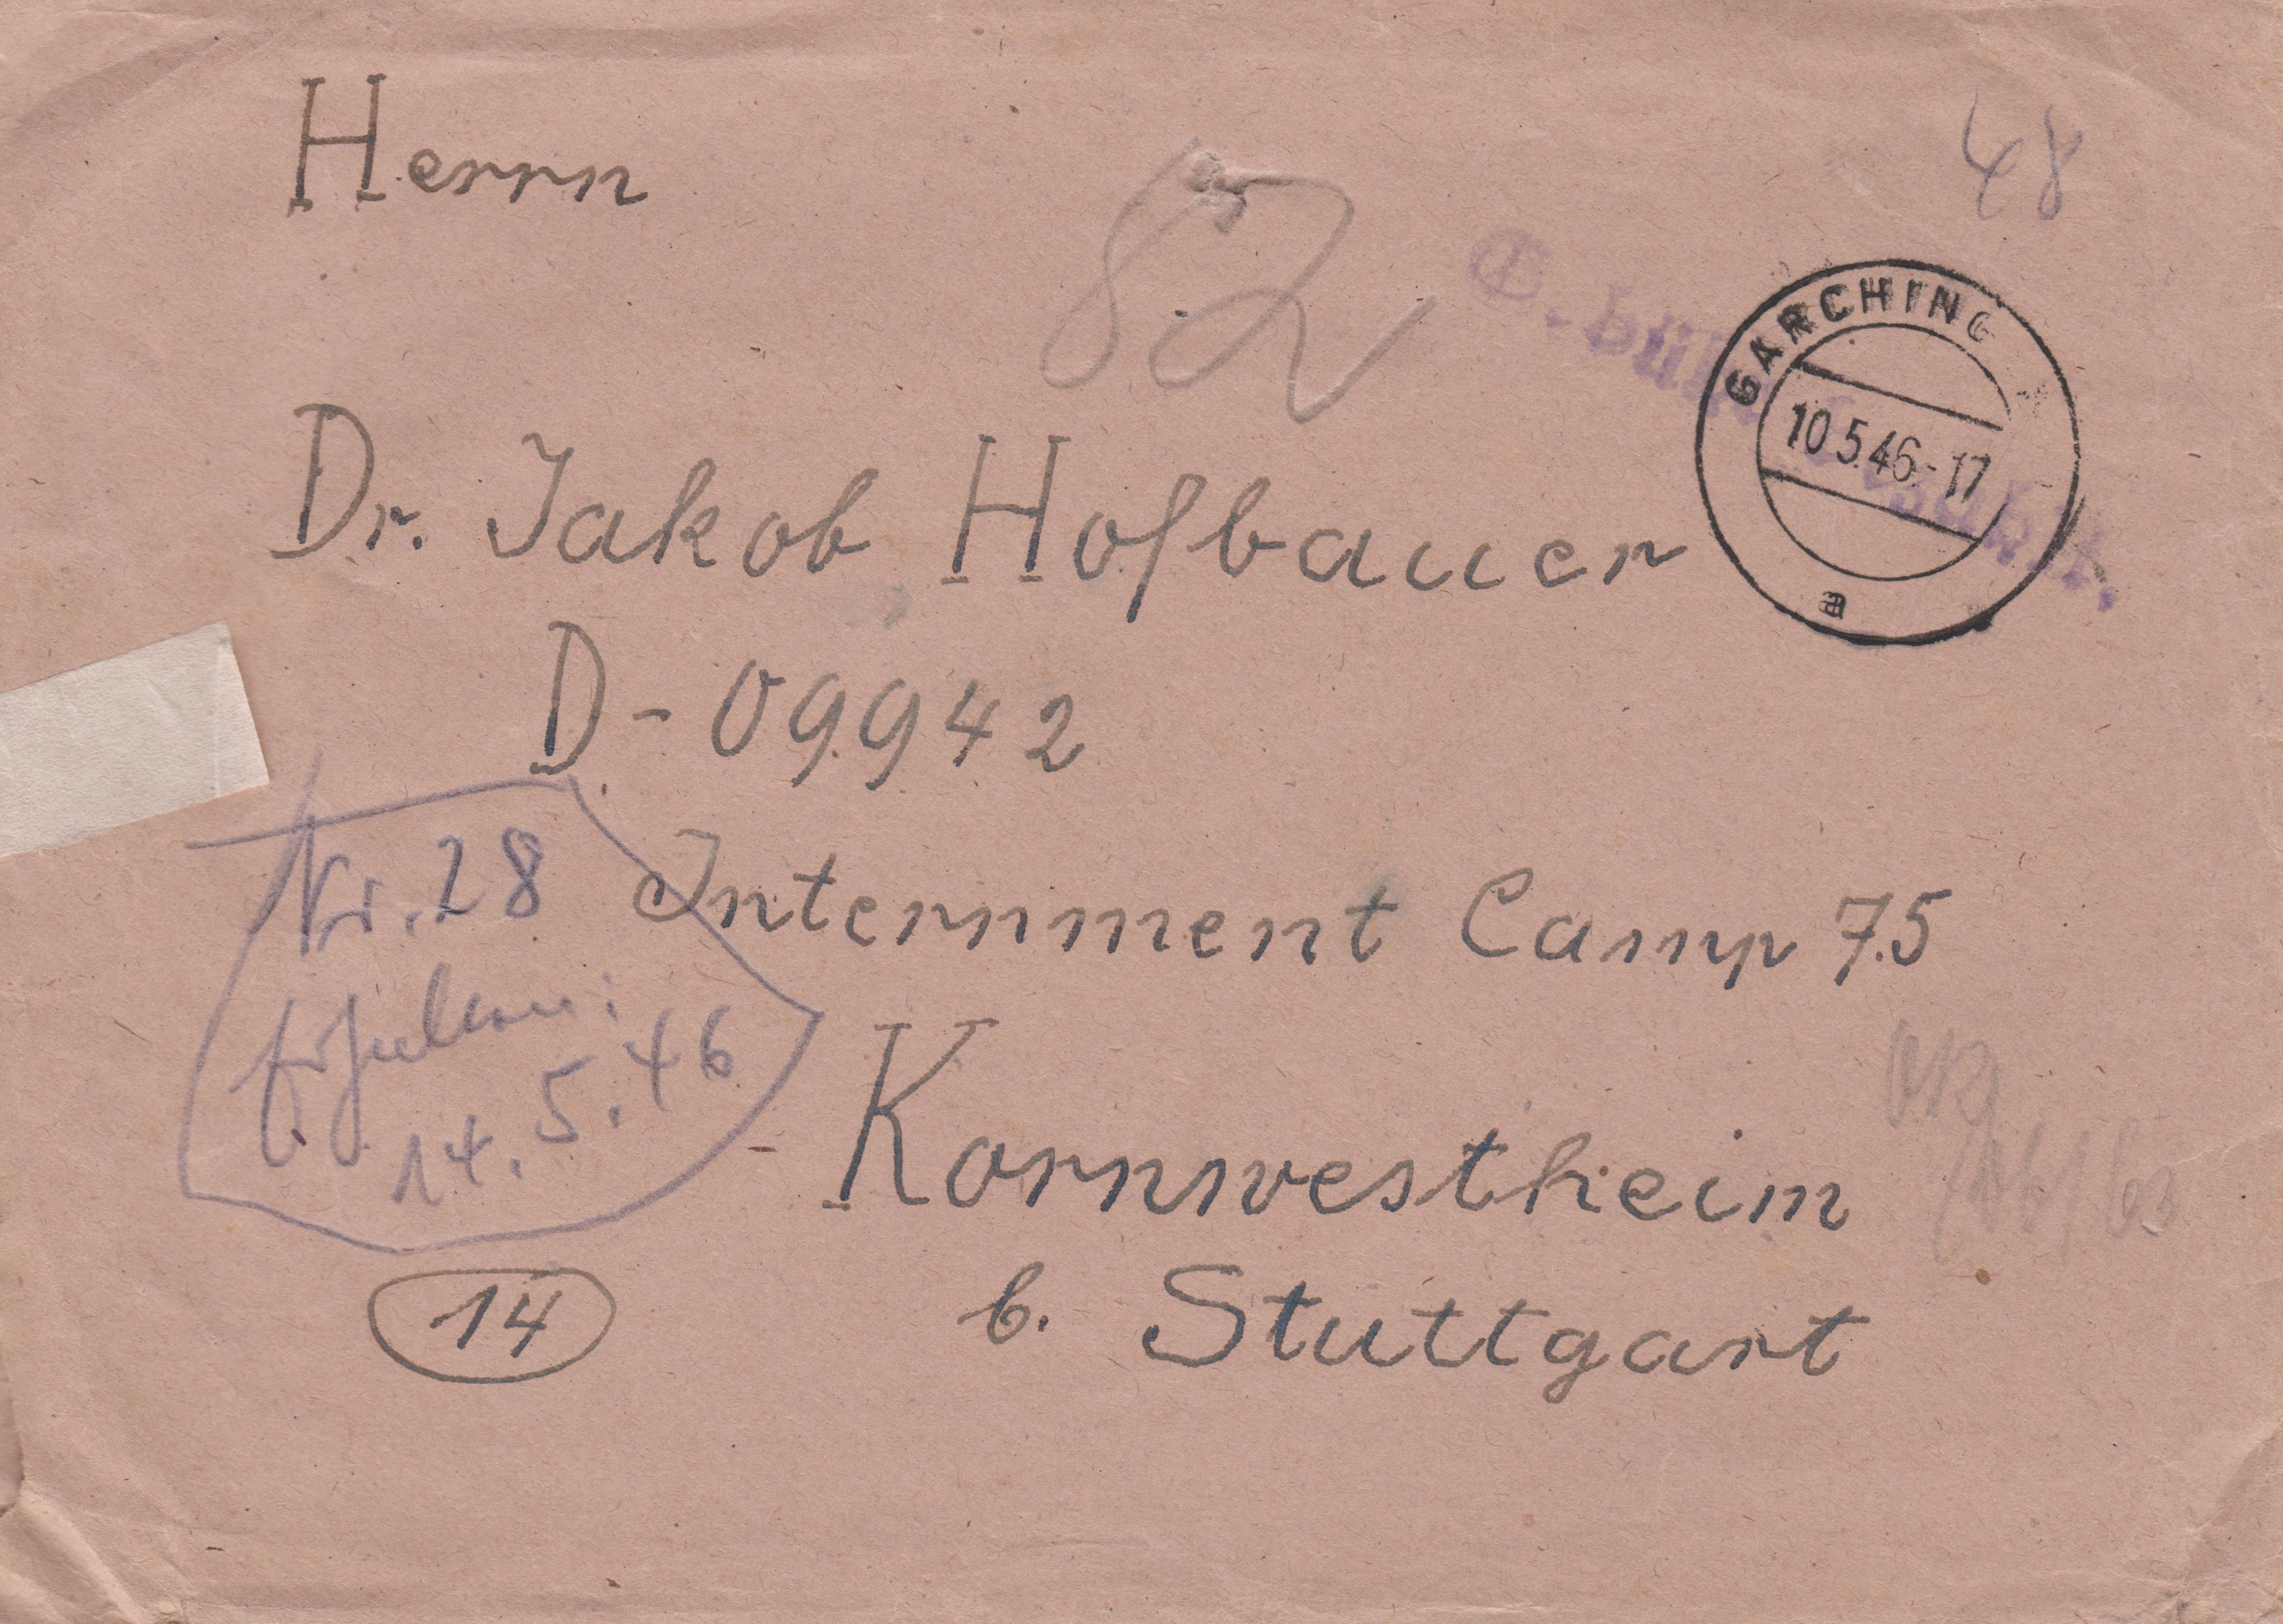 Herrn
48
82
GARCHING
10.5.46-17
a
Dr. Jakob Hofbauer
D-09942
Internment Camp 75
Nr. 28
Erhalten:
14.5.46
Kornwestheim
b. Stuttgart
14